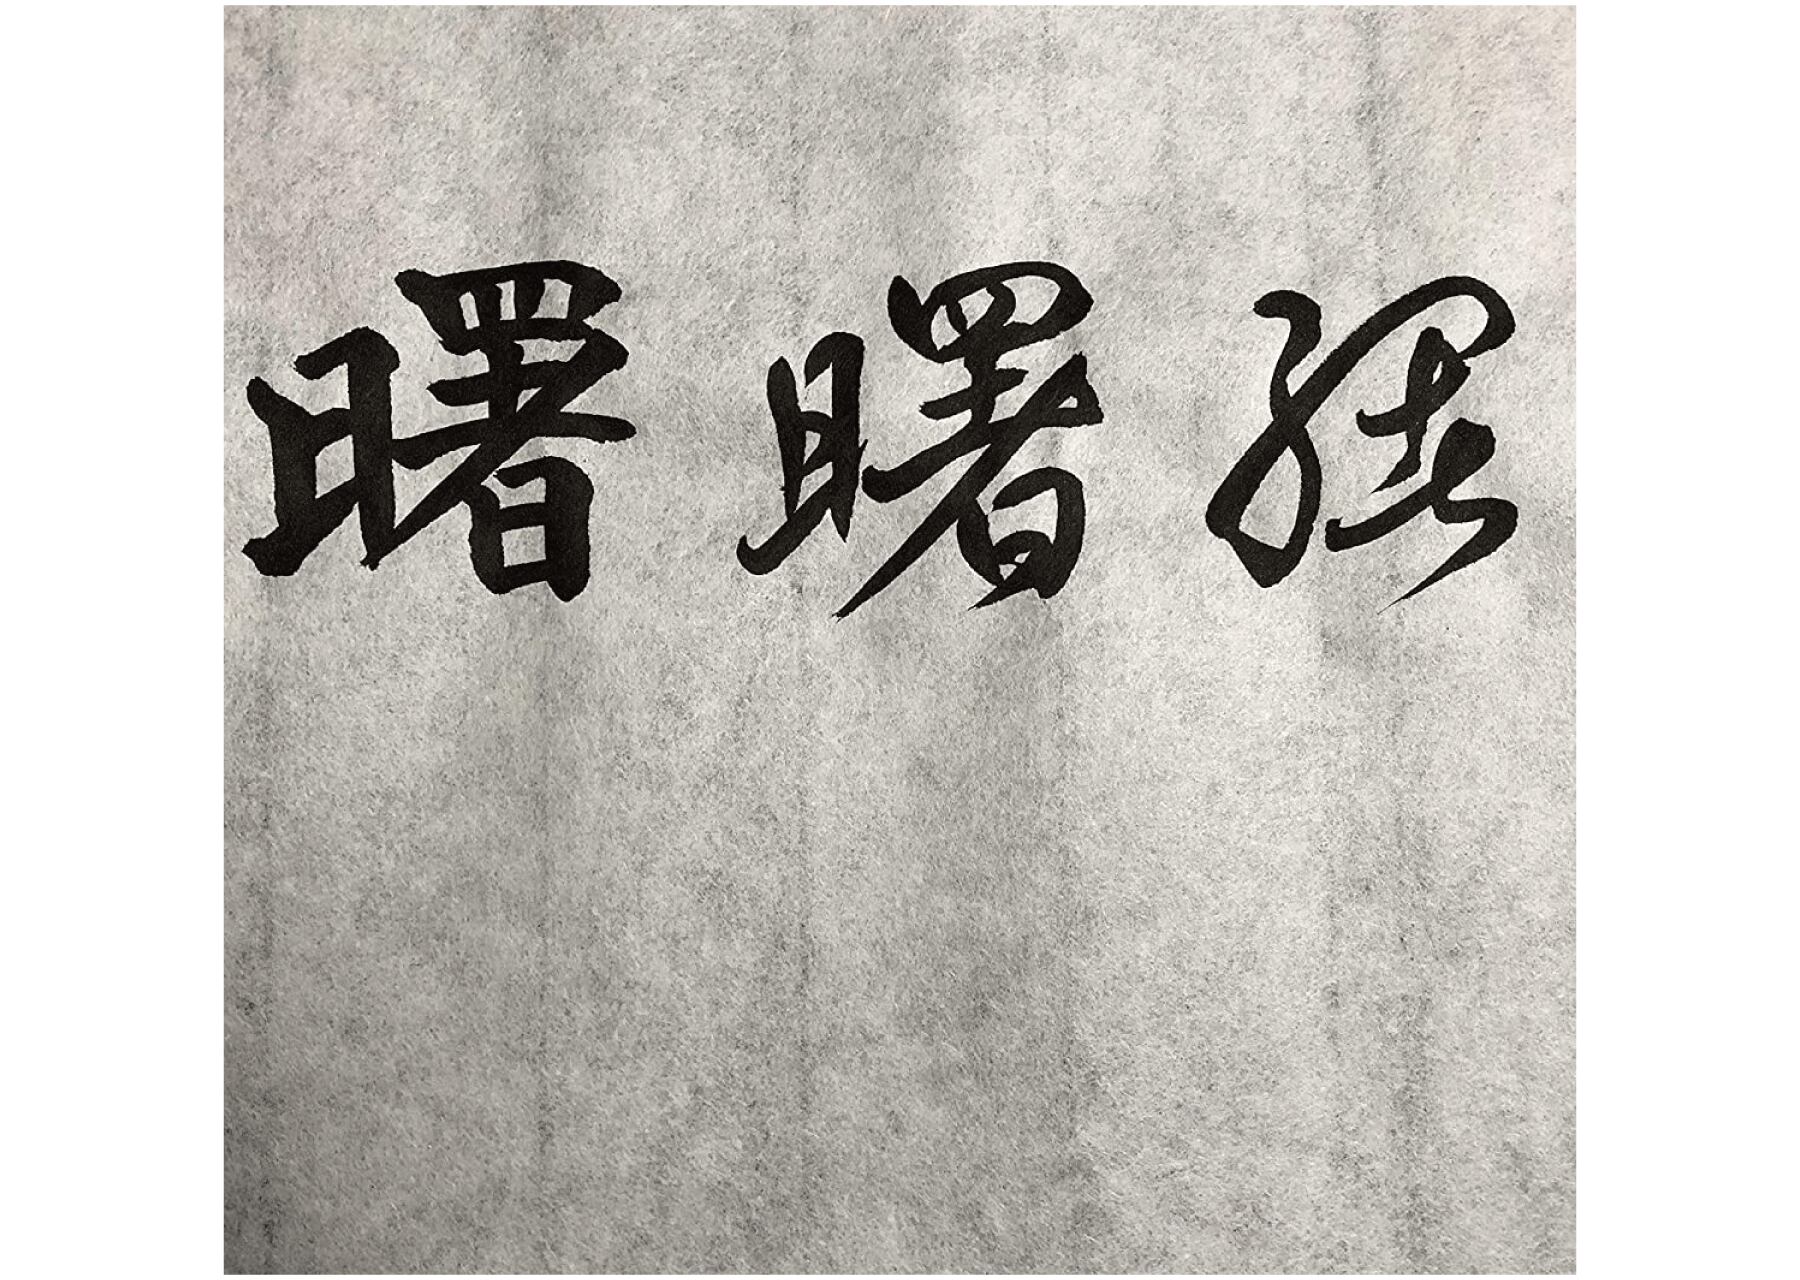 曙曙曙